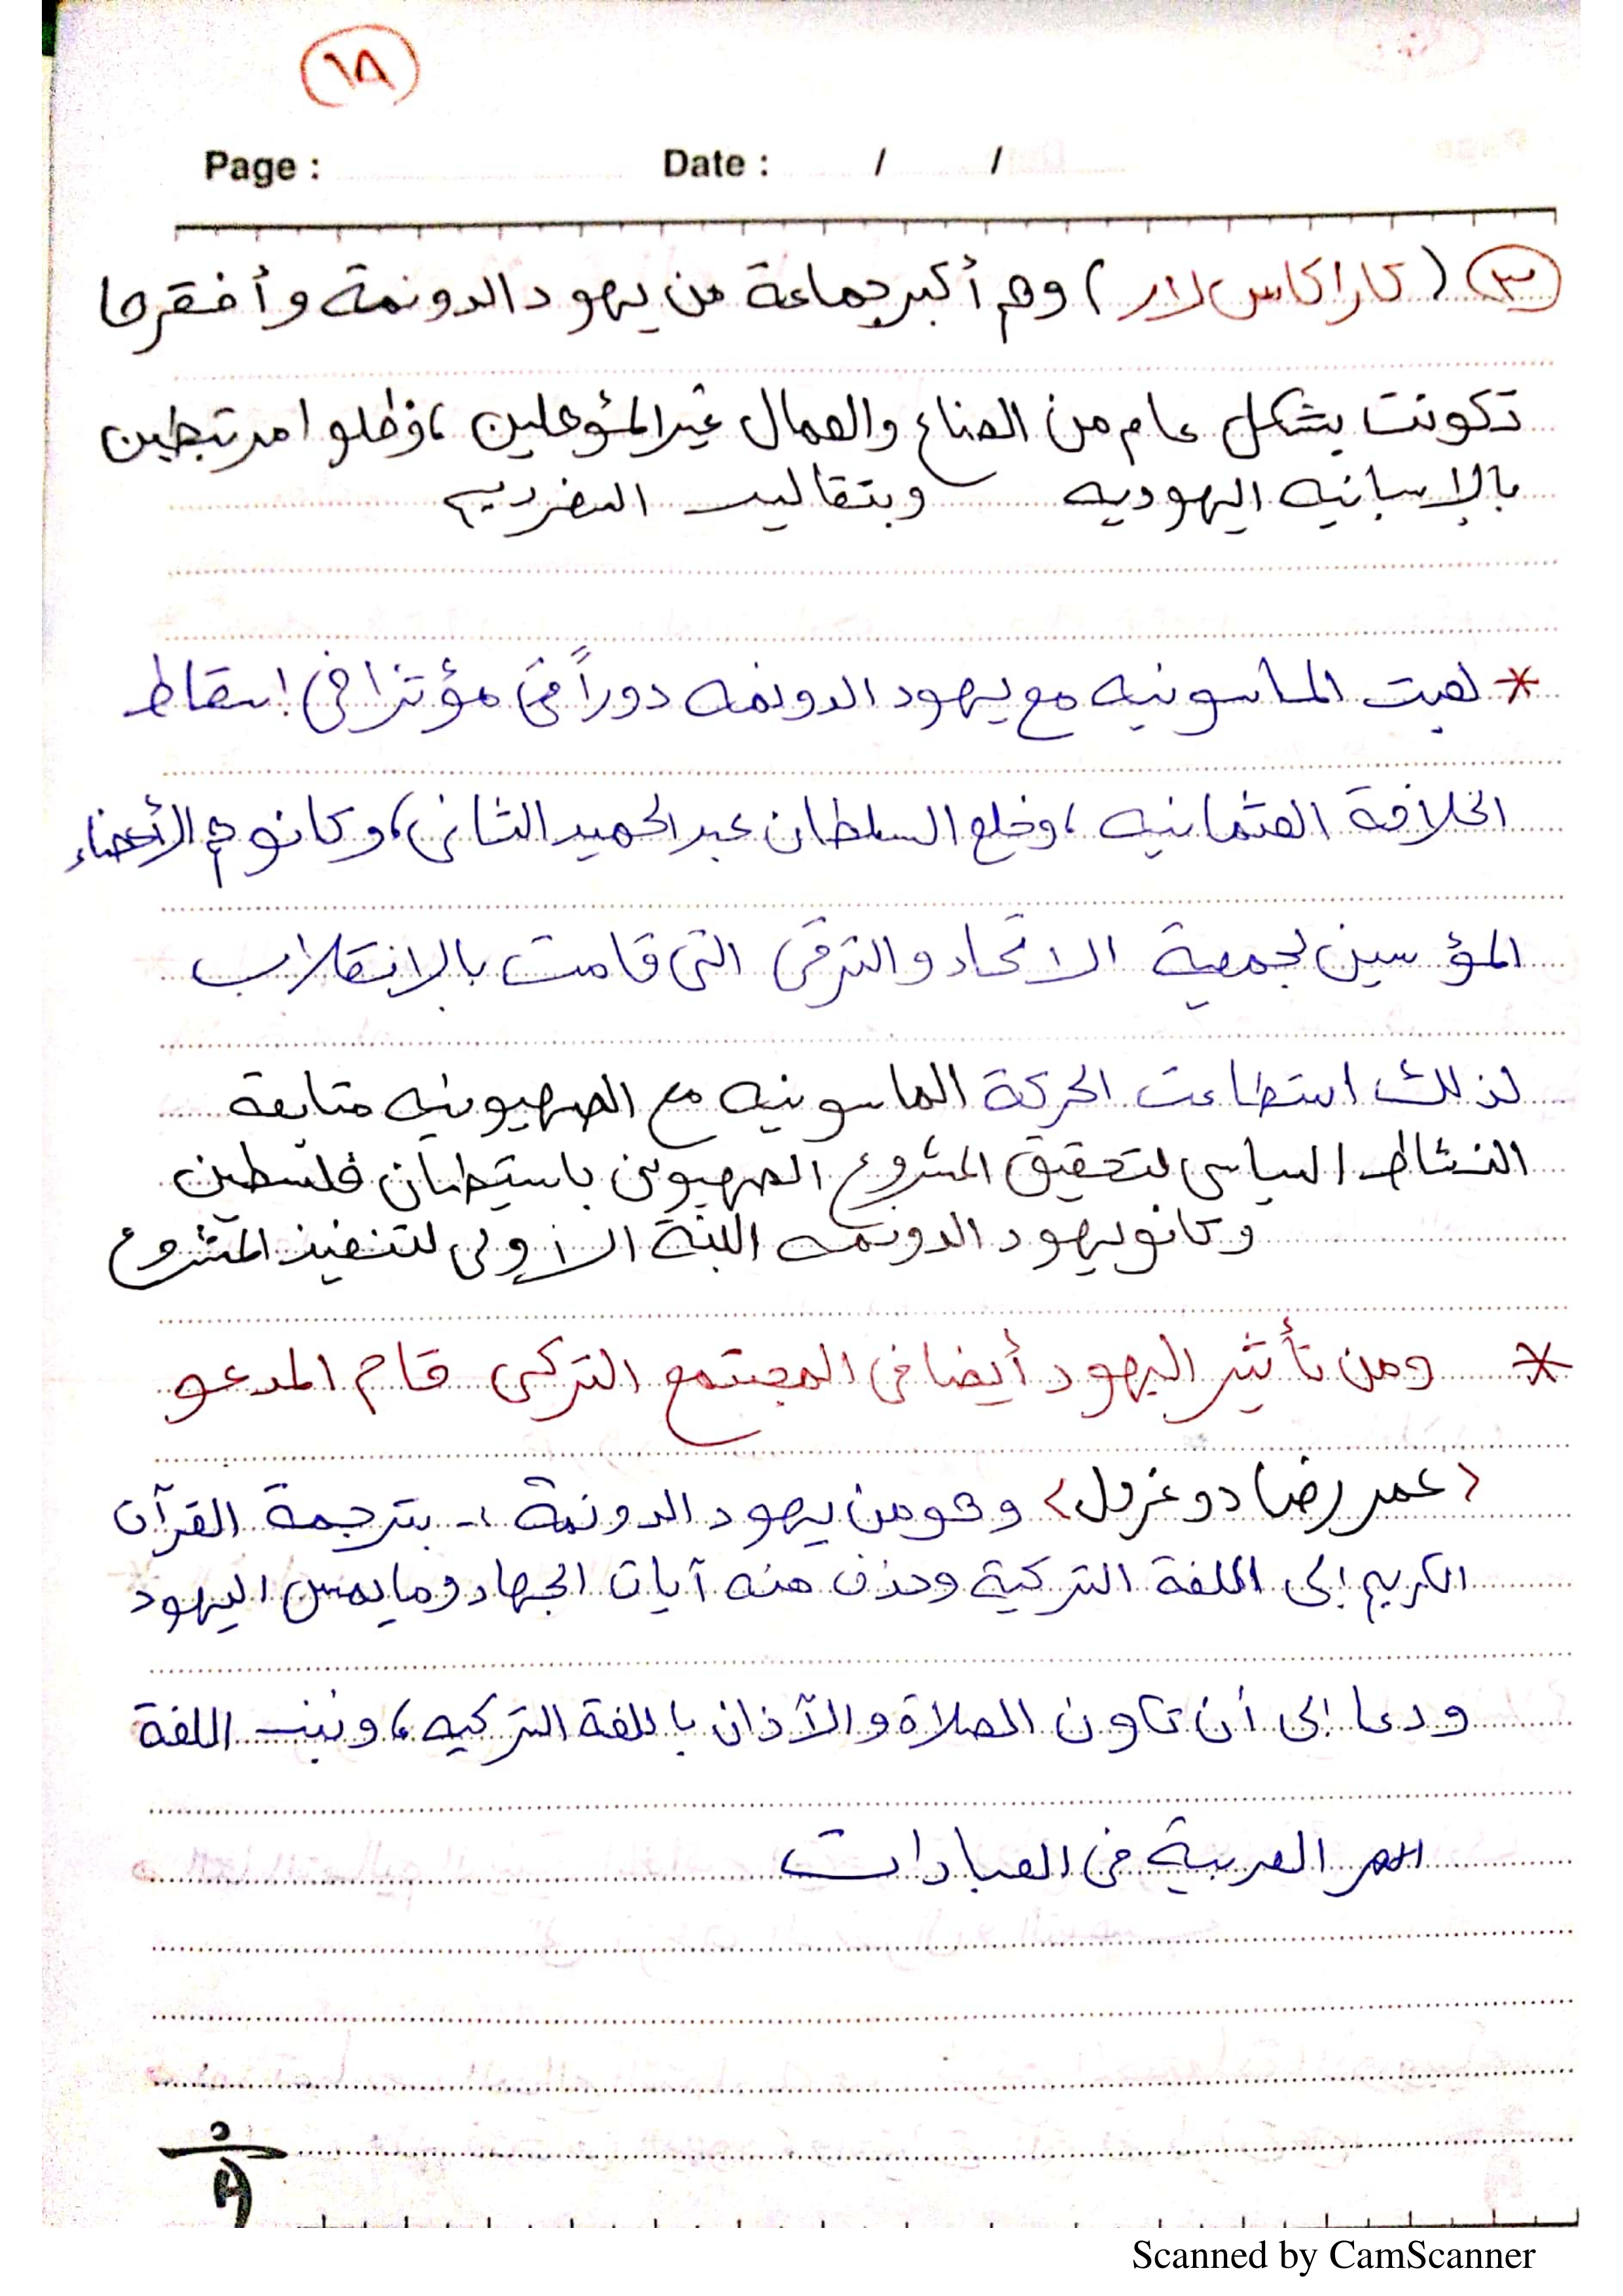 ١٨
Page : Date : / /
٣ ( كاراكاس لار ) وهم أكبر جماعة من يهود الدونمة وأفقرها
تكونت بشكل عام من الصناع والعمال غير المؤهلين ، وظلوا مرتبطين
بالإسبانيه اليهوديه وبتقاليد السفرديم
* لعبت الماسونيه مع يهود الدونمه دوراً في مؤثرا في إسقاط
الخلافة العثمانيه ، وخلع السلطان عبد الحميد الثاني ، وكانو هم الأعضاء
المؤسسين لجمعية الاتحاد والترقي التي قامت بالانقلاب
لذلك استطاعت الحركة الماسونيه مع الصهيونيه متابعة
النشاط السياسي لتحقيق المشروع الصهيوني باستيطان فلسطين
وكانو يهود الدونمه اللبنة الأولى لتنفيذ المشروع
* ومن تأثير اليهود أيضا في المجتمع التركي قام المدعو
< عمر رضا دوغرول > وهو من يهود الدونمة :- بترجمة القرآن
الكريم إلى اللغة التركية وحذف منه آيات الجهاد وما يمس اليهود
ودعا إلى أن تكون الصلاة والآذان باللغة التركيه ، ونبذ اللغة
العربية في العبادات
Scanned by CamScanner